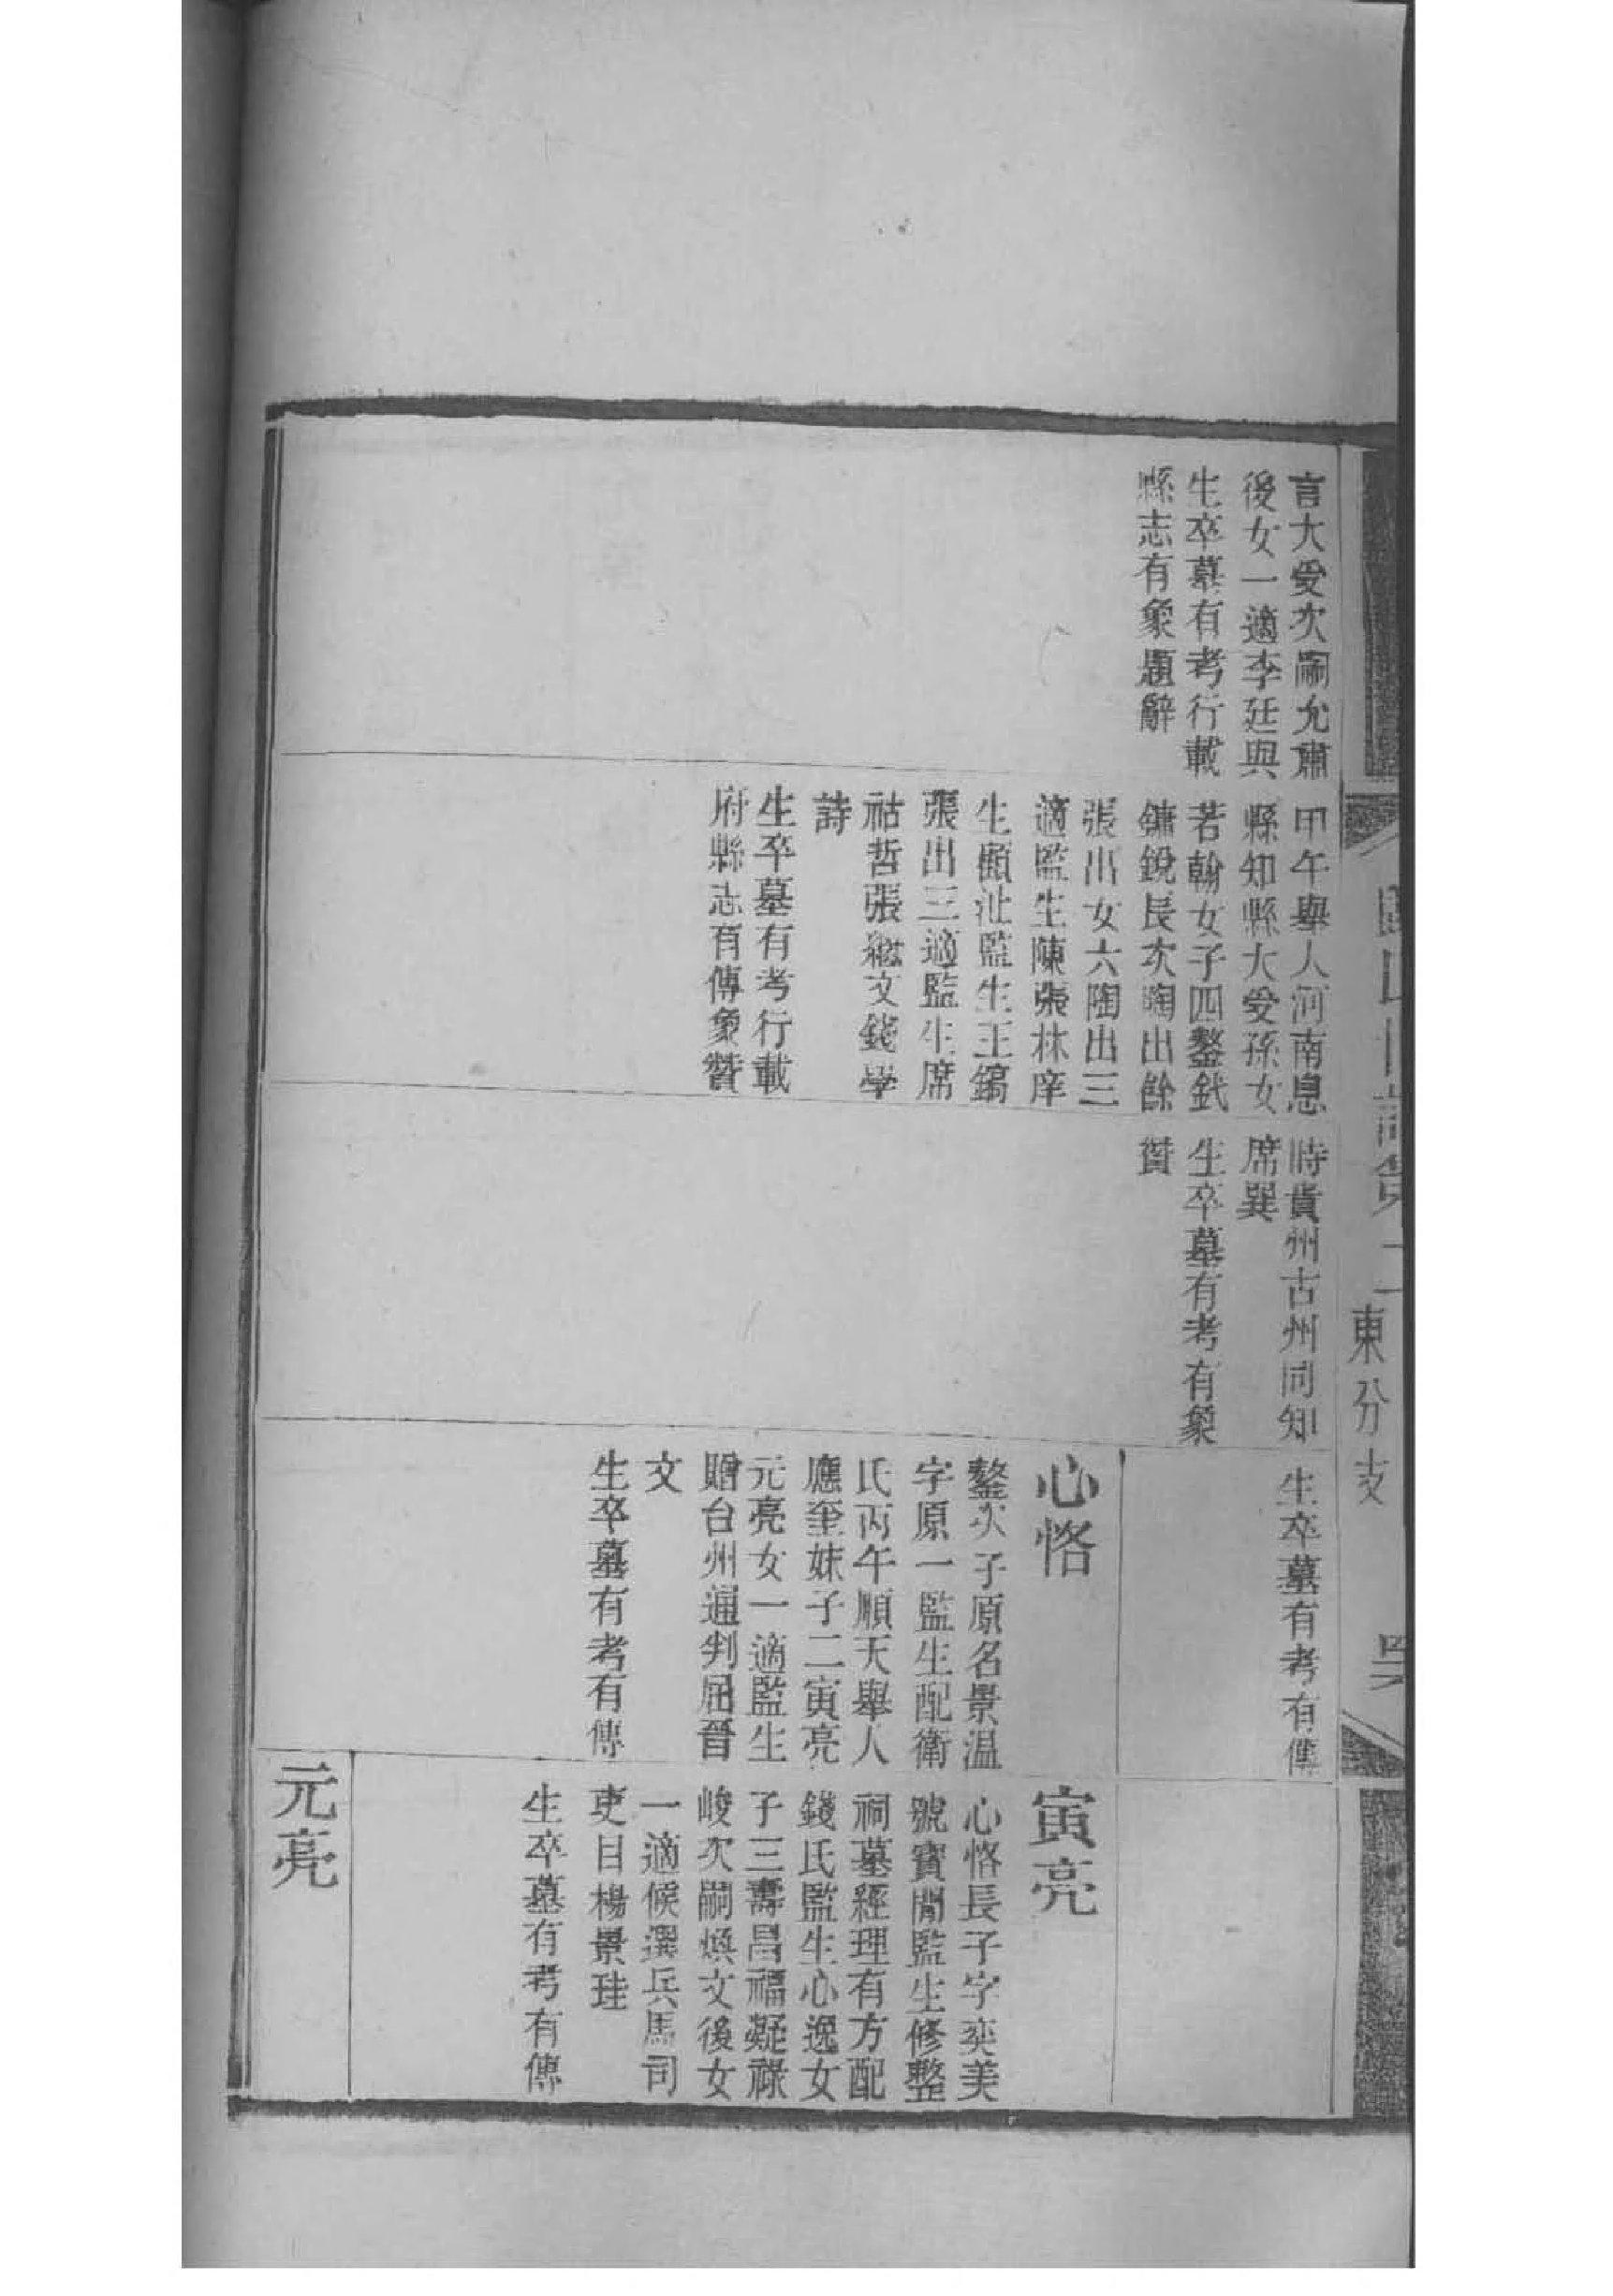 言大受次嗣允肅
後女一適李廷與
生卒墓有考行載
縣志有象題辭
甲午舉人河南息
縣知縣大受孫女
若翰女子四鏊釴
鏞銳長次陶出餘
張出女六陶出三
適監生陳張林庠
生顧沚監生王鎬
張出三適監生席
祜哲張繼文錢學
詩
生卒墓有考行載
府縣志有傳象贊
時貴州古州同知
席巽
生卒墓有考有象
贊
生卒墓有考有傳
心恪
鏊次子原名景温
字原一監生配衛
氏丙午順天舉人
應奎妹子二寅亮
元亮女一適監生
贈台州通判屈晉
文
生卒墓有考有傳
寅亮
心恪長子字奕美
號寶閒監生修整
祠墓經理有方配
錢氏監生心逸女
子三壽昌福凝祿
峻次嗣煥文後女
一適候選兵馬司
吏目楊景珪
生卒墓有考有傳
元亮
東分支